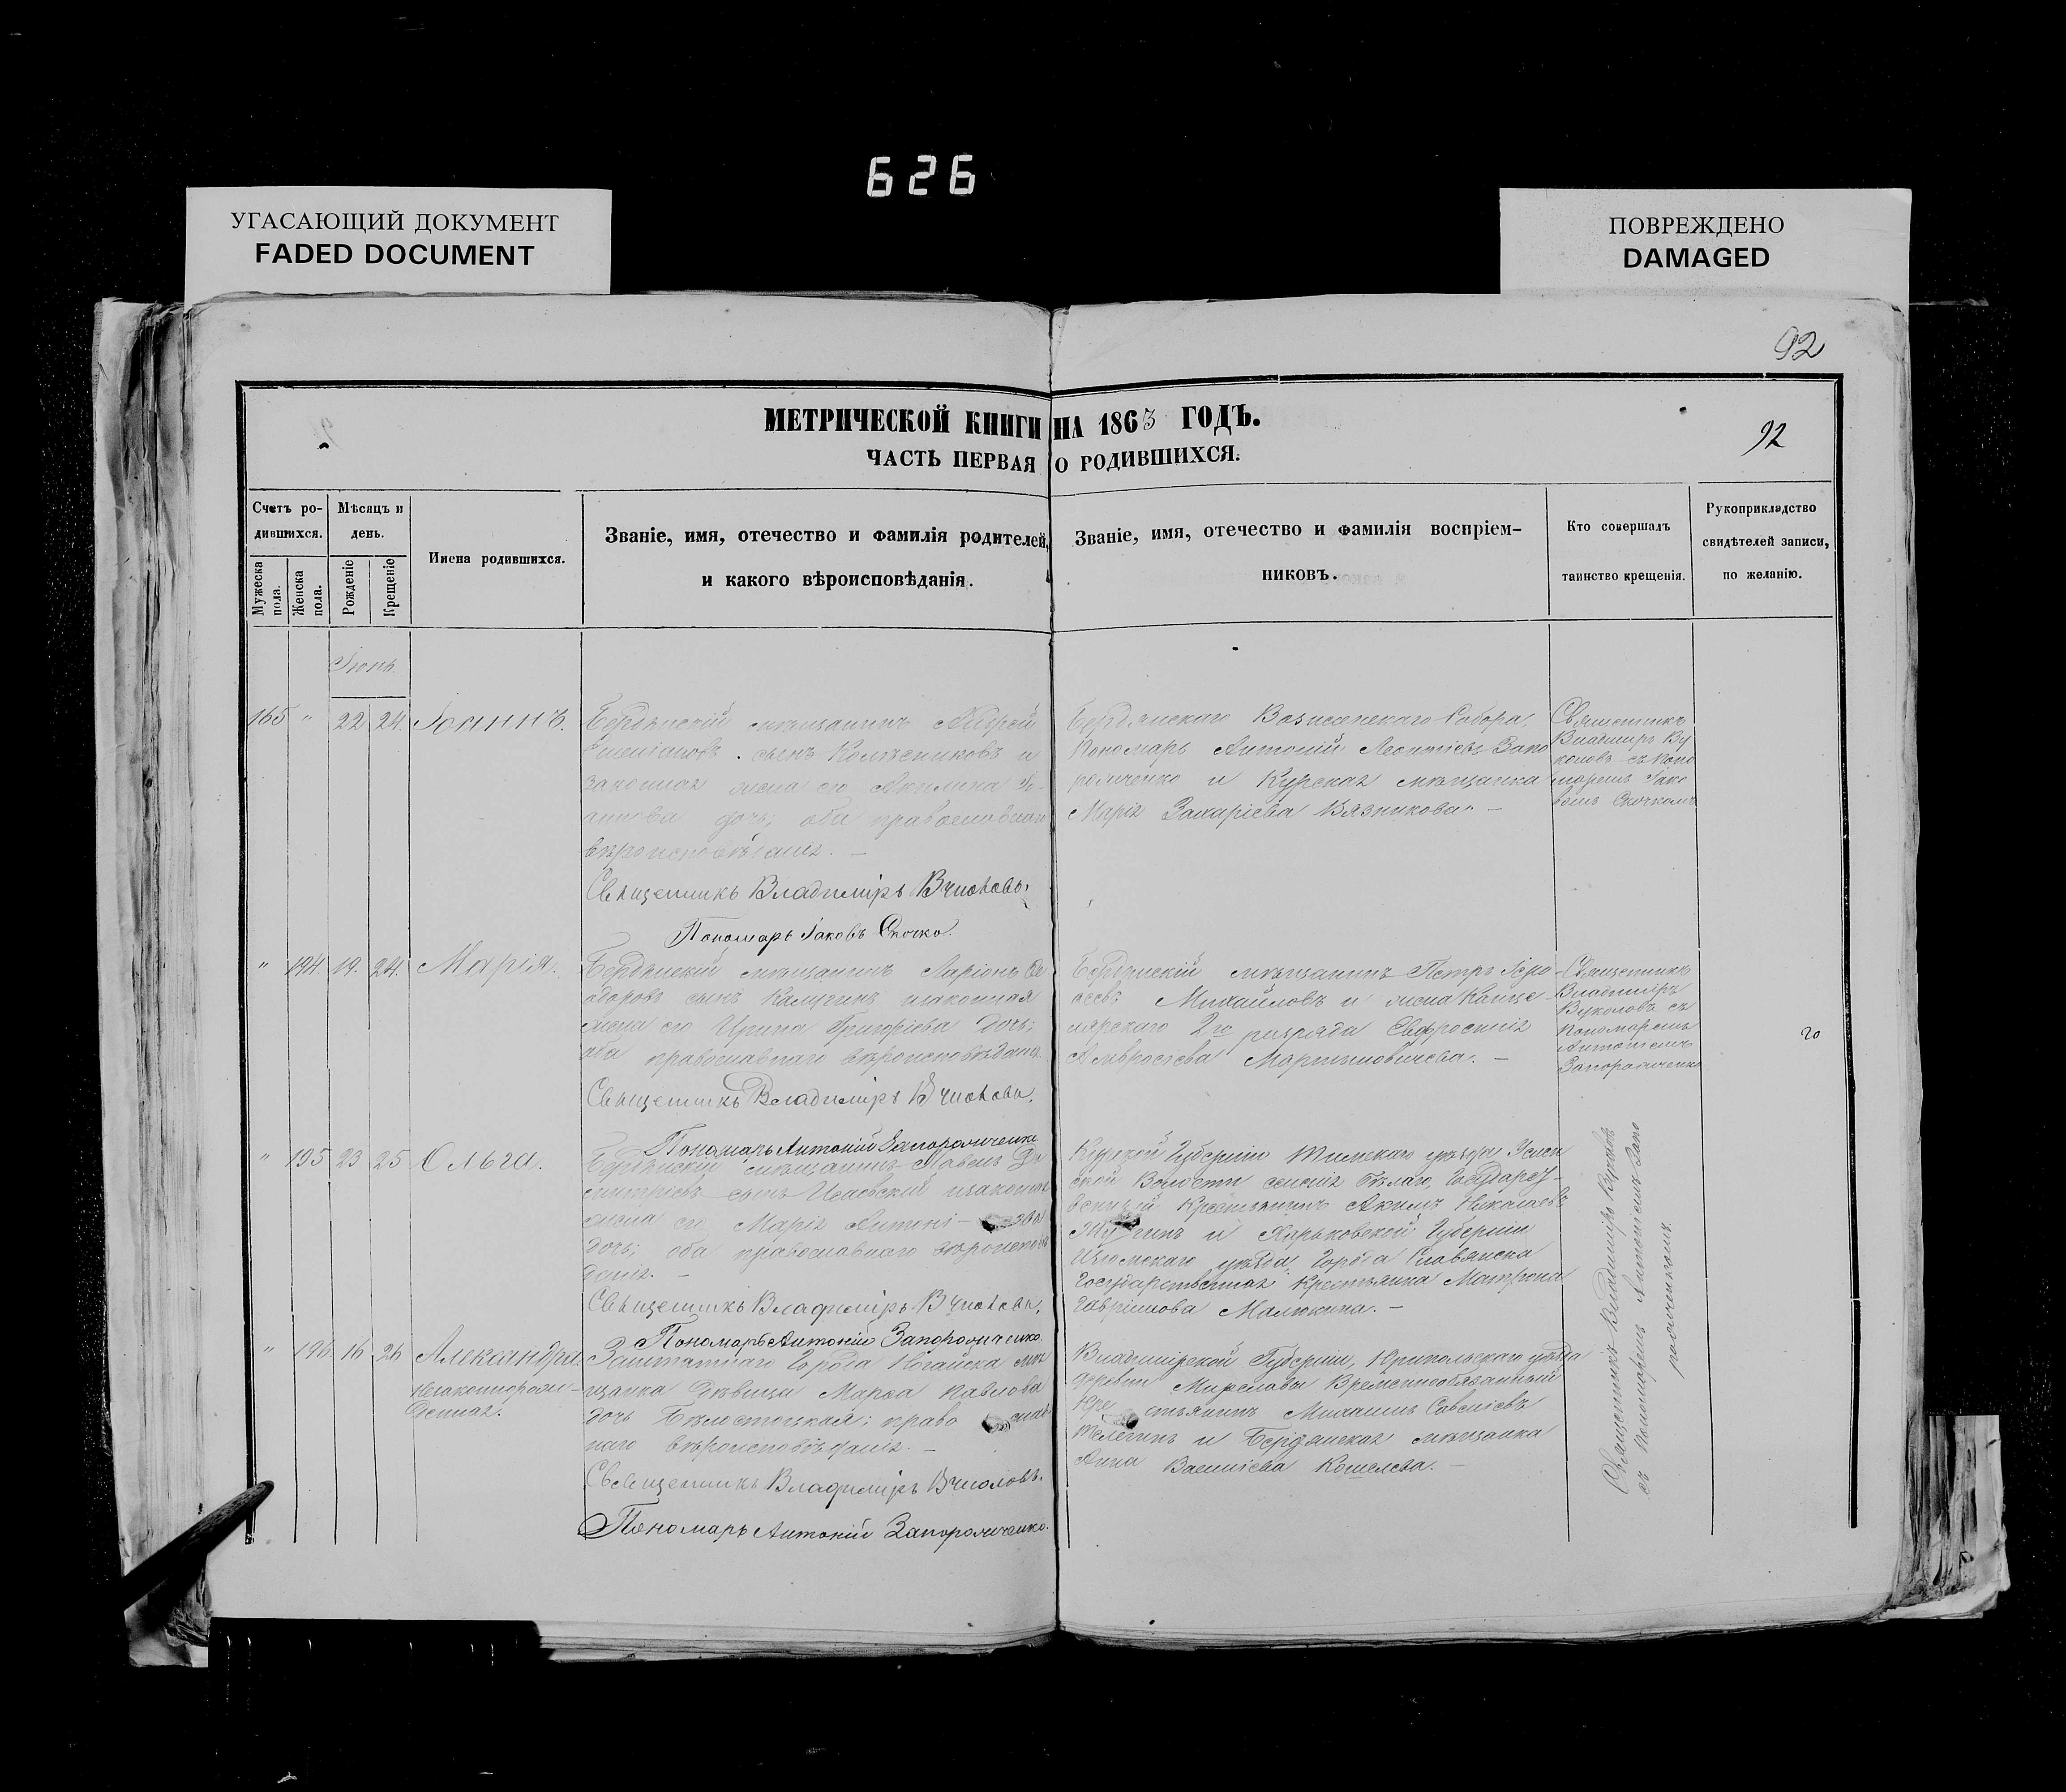 626
УГАСАЮЩИЙ ДОКУМЕНТ
FADED DOCUMENT
ПОВРЕЖДЕНО
DAMAGED
92
МЕТРИЧЕСКОЙ КНИГИ НА 1863 ГОДЪ.
92
ЧАСТЬ ПЕРВАЯ О РОДИВШИХСЯ.
Счетъ ро-
дившихся.
Мужеска пола.
Женска пола.
Мѣсяцъ и
день.
Рожденіе
Крещеніе
Имена родившихся.
Званіе, имя, отечество и фамилія родителей,
и какого вѣроисповѣданія.
Званіе, имя, отечество и фамилія воспріем-
никовъ.
Кто совершалъ
таинство крещенія.
Рукоприкладство
свидѣтелей записи,
по желанію.
Іюнь.
165 " 22 24. Іоаннъ.
Бердянскій мѣщанинъ Андрей
сынъ Колѣсниковъ и
законная жена его Акилина Іо-
аннова дочь; оба православнаго
вѣроисповѣданія. –
Священникъ Владиміръ Вуколовъ.
Пономарь Іаковъ Скочко.
Бердянскаго Вознесенскаго Собора,
Пономарь Антоній Леонтіевъ Запо
рожченко и Курская мѣщанка
Марія Захаріева Вязникова. –
Священникъ
Владиміръ Ву
коловъ съ поно
маремъ Іако
вомъ Скочкомъ
" 194. 19. 24. Марія.
Бердянскій мѣщанинъ Ларіонъ Ѳе
одоровъ сынъ Калугинъ изаконная
жена его Ирина Григоріева дочь;
оба православнаго вѣроисповѣданія.
Священникъ Владиміръ Вуколовъ.
Пономарь Антоній Запорожченко.
Бердянскій мѣщанинъ Петръ
Михайловъ и жена Канце
лярскаго 2го разряда Евфросинія
Амвросіева Мартыновичева. –
Священникъ
Владиміръ
Вуколовъ съ
пономаремъ
Антоніемъ
Запорожченко
20
" 195 23 25 Ольга.
Бердянскій мѣщанинъ Павелъ Ди
митріевъ сынъ Исаевскій изаконная
жена его Марія Антоні-
дочь; оба православнаго вѣроисповѣ
данія. –
Священникъ Владиміръ Вуколовъ.
Пономарь Антоній Запорожченко.
Курской Губерніи Тимскаго уѣзда
ской Волости селенія Бѣлаго, Государст-
венный Крестьянинъ Акимъ Николаевъ
и Харьковской Губерніи
Изюмскаго уѣзда, Города Славянска
Государственная Крестьянка Матрона
Гавріилова Малюкина. –
Священникъ Владиміръ Вуколовъ
съ пономаремъ Антоніемъ Запо
рожченкомъ.
" 196 16 26 Александра
незаконнорож-
денная.
Заштатнаго Города Ногайска мѣ
щанка дѣвица Марѳа Павлова
дочь Бѣлостоцкая; право слав
наго вѣроисповѣданія. –
Священникъ Владиміръ Вуколовъ.
Пономарь Антоній Запорожченко.
Владимірской Губерніи, Юрипольскаго уѣзда
деревни Временнообязанный
Кре стьянинъ Михаилъ Савеліевъ
Телегинъ и Бердянская мѣщанка
Анна Василіева Кошелева. –